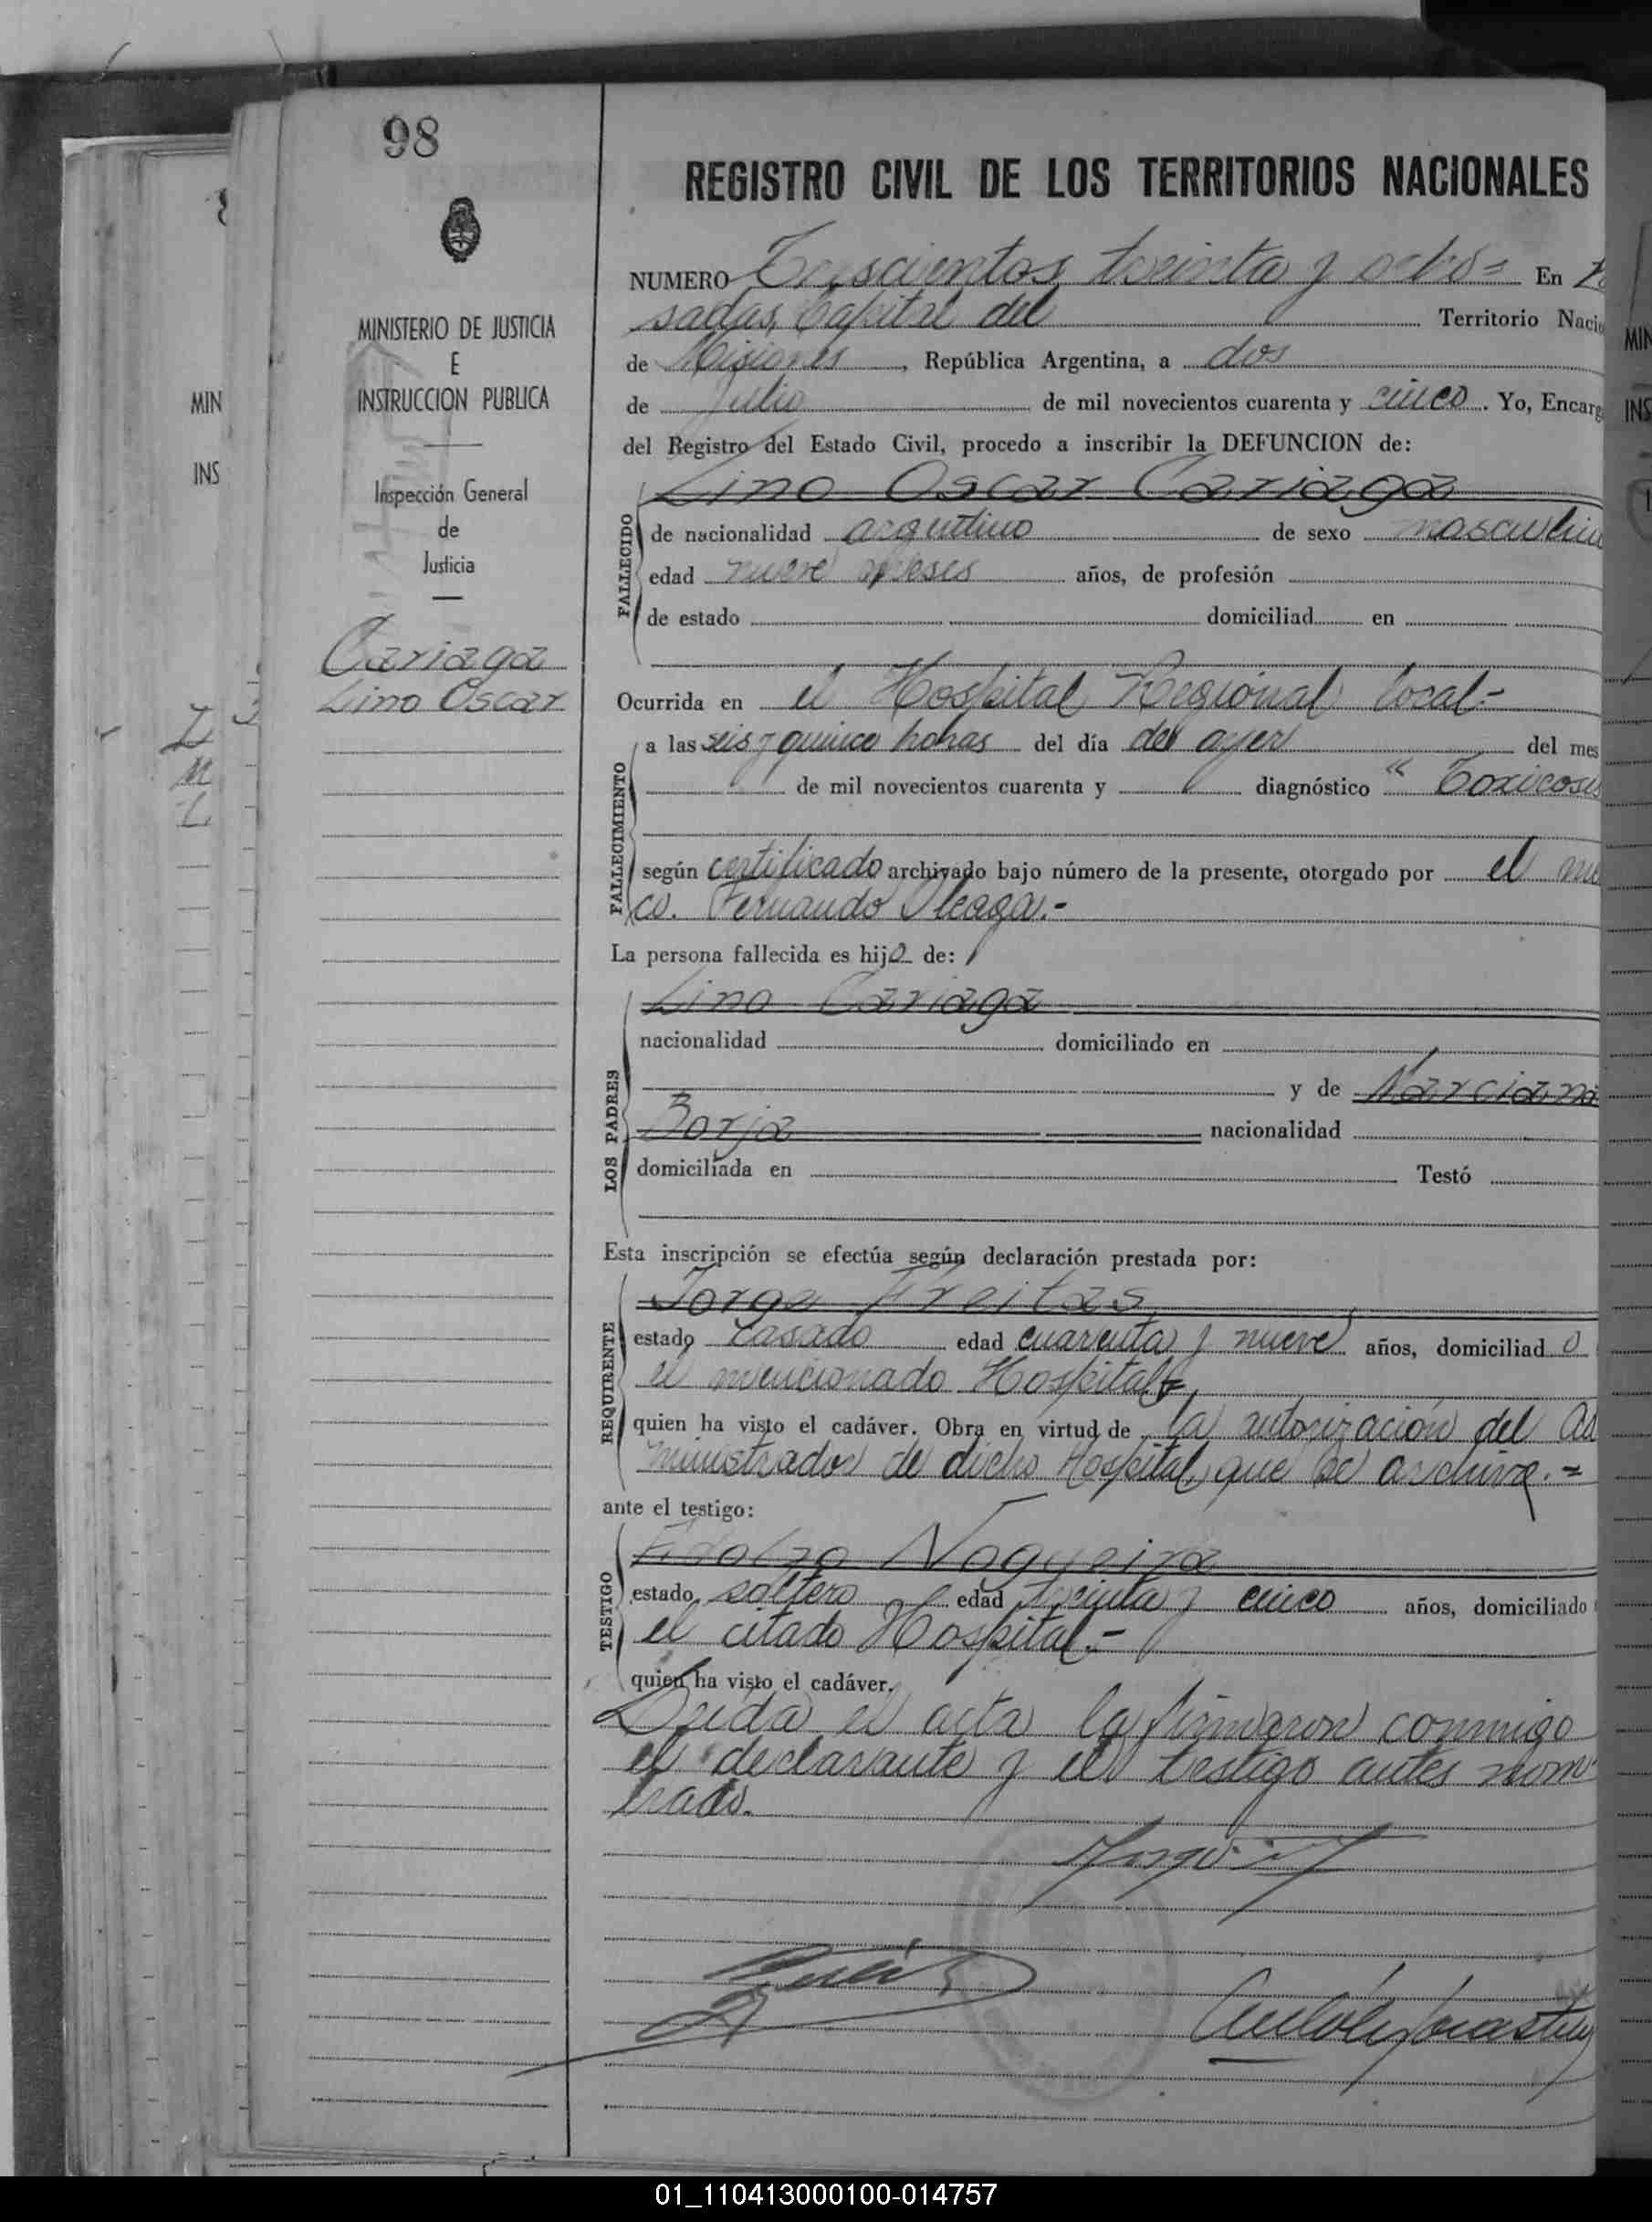 98
REGISTRO CIVIL DE LOS TERRITORIOS NACIONALES
NUMERO Trescientos treinta y ocho= En Po
sadas, Capital del Territorio Nacio
de Misiones, República Argentina, a dos
de julio de mil novecientos cuarenta y cinco. Yo, Encarg
del Registro del Estado Civil, procedo a inscribir la DEFUNCION de:
Lino Oscar Cariaga
FALLECIDO
de nacionalidad argentino de sexo masculino
edad nueve meses años, de profesión
de estado domiciliad en
Ocurrida en el Hospital Regional local.-
FALLECIMIENTO
a las seis y quince horas del día de ayer del mes
de mil novecientos cuarenta y diagnóstico "Toxicosis
según certificado archivado bajo número de la presente, otorgado por el mé
co. Fernando Oleaga.-
La persona fallecida es hijo de:
LOS PADRES
Lino Cariaga
nacionalidad domiciliado en
y de Narciana
Borja nacionalidad
domiciliada en Testó
Esta inscripción se efectúa según declaración prestada por:
REQUIRENTE
Jorge Freitas,
estado casado edad cuarenta y nueve años, domiciliad o
el mencionado Hospital,
quien ha visto el cadáver. Obra en virtud de la autorización del Ad
ministrador de dicho Hospital, que se archiva.=
ante el testigo:
TESTIGO
Adolfo Nogueira
estado soltero edad treinta y cinco años, domiciliado
el citado Hospital.-
quien ha visto el cadáver.
Leída el acta la firmaron conmigo
el declarante y el testigo antes nom
brado.
MINISTERIO DE JUSTICIA
E
INSTRUCCION PUBLICA
Inspección General
de
Justicia
Cariaga
Lino Oscar
MIN
INS
MIN
INS
01_110413000100-014757